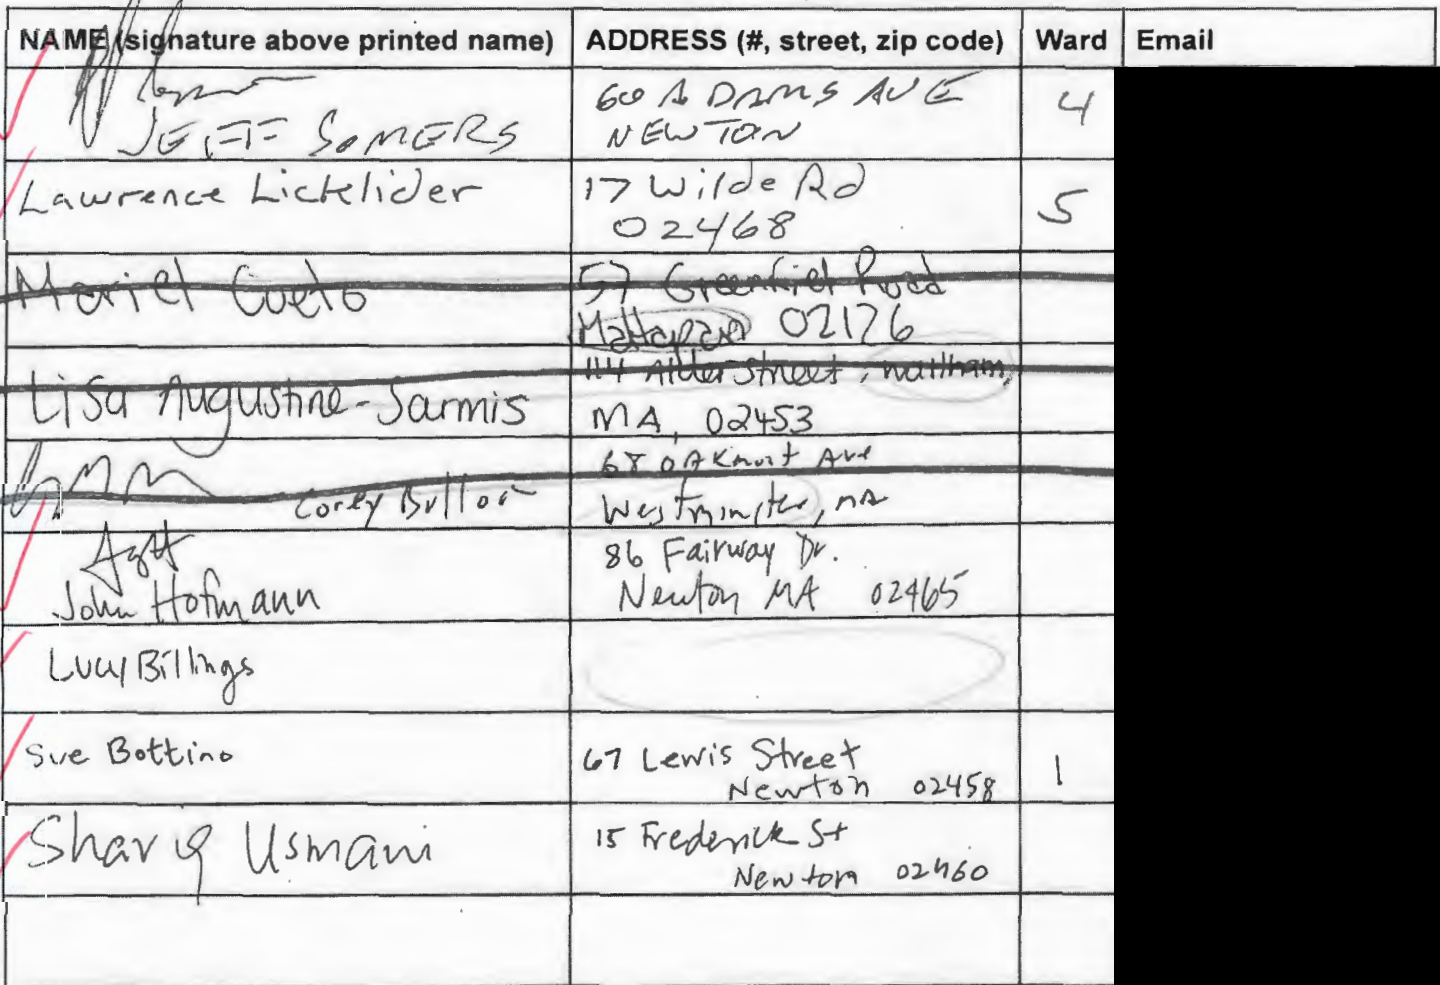 NAME (signature above printed name) ADDRESS (#, street, zip code) Ward Email
JEFF SOMERS
60 ADAMS AVE
NEWTON
4
Lawrence Lickelider
17 Wilde Rd
02468
5
Mariel Cueto
57 Greenfiel Road
Mattapan 02126
Lisa Augustine-Sarmis
114 Alder Street, waltham,
MA, 02453
Corey Bullock
68 Oakmont Ave
Westminster, MA
John Hofmann
86 Fairway Dr.
Newton MA 02465
Lucy Billings
Sue Bottino
67 Lewis Street
Newton 02458
1
Shariq Usmani
15 Frederick St
Newton 02460